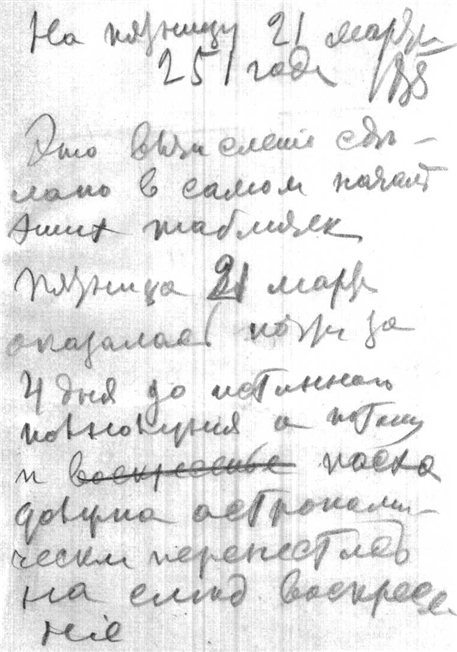 На пятницу 21 марта
251 года
Это вычисленіе сдѣ-
лано в самом началѣ
этих табличек
пятница 21 марта
оказалась почти за
4 дня до истиннаго
полнолунія а потому
и воскресенье пасха
должна астрономи-
чески перенестись
на слѣд воскресе
ніе